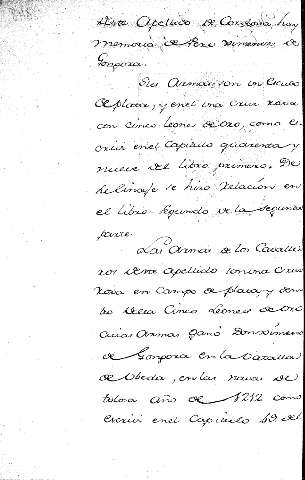 deste Apellido de Cordova, hay
memoria de Pero Ximenez de
Gongora.
Sus Armas son un Escudo
de plata, y en el una cruz roxa
con cinco leones de oro, como es-
crivi en el Capitulo quarenta y
nueve del libro primero. De
este linaje se hizo relación en
el libro segundo de la segunda
parte.
Las Armas de los Cavalle-
ros deste apellido son una Cruz
roxa en campo de plata, y den-
tro della Cinco Leones de oro
cuias Armas ganó Don Ximeno
de Gongora en la Batalla
de Ubeda, en las navas de
tolosa año de 1212 como
escrivi en el Capitulo 49 del